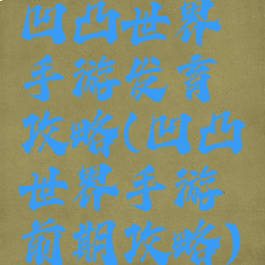 凹凸世界
手游发育
攻略(凹凸
世界手游
前期攻略)